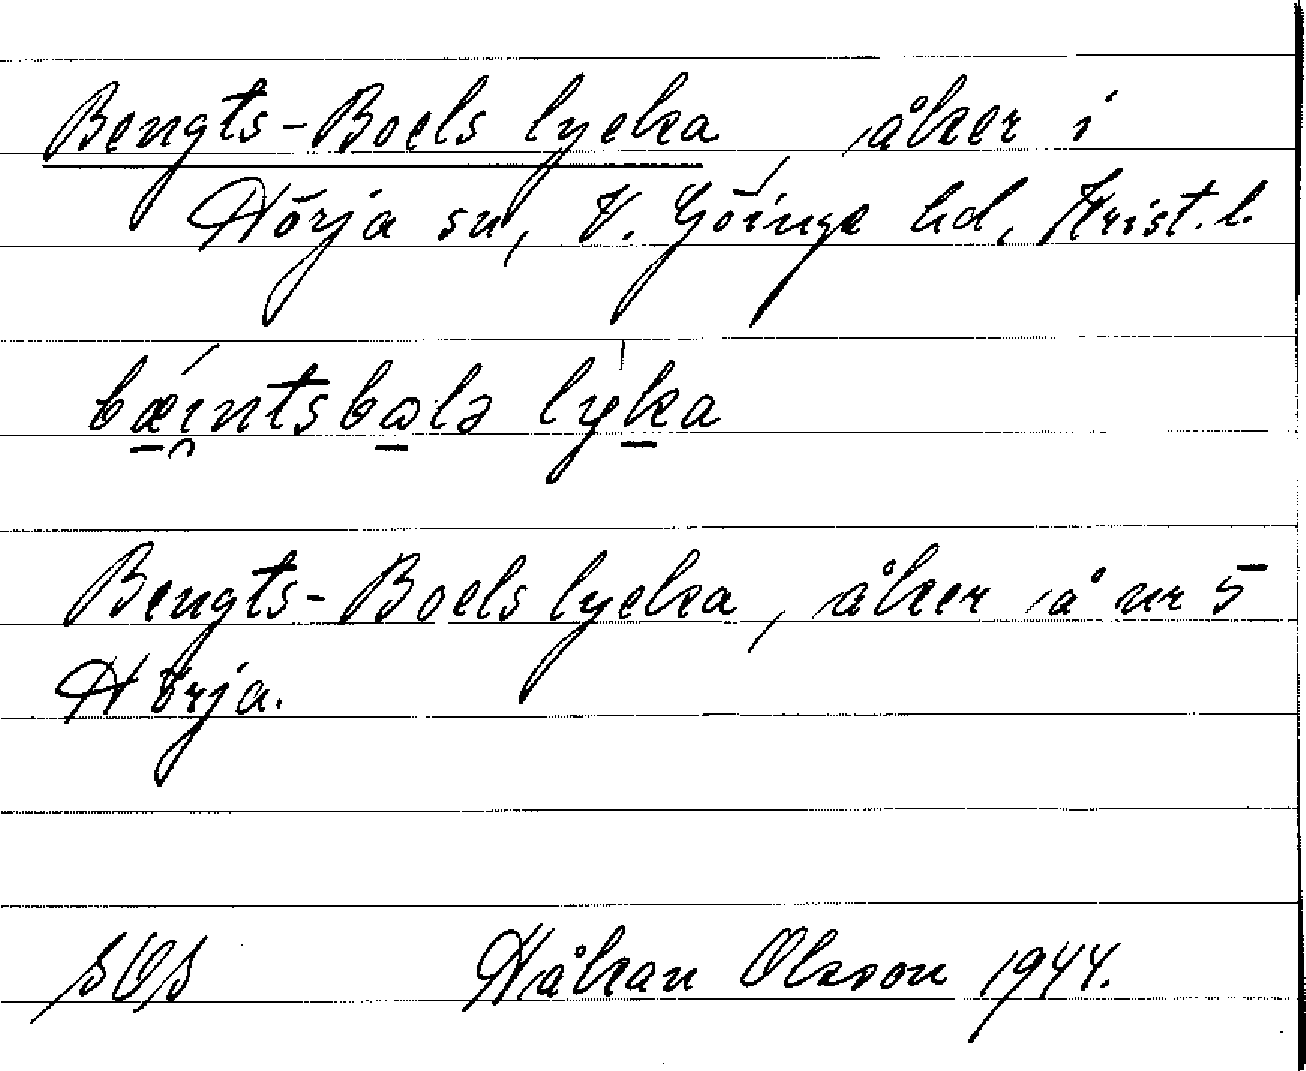 Bengts-Boels lycka åker i
Hörja sn, V. Göinge hd, Krist. l.
bǽ̱i̯ntsbω̱lə lyḵa
Bengts-Boels lycka, åker å nr 5
Hörja.
SOS Håkan Olsson 1944.